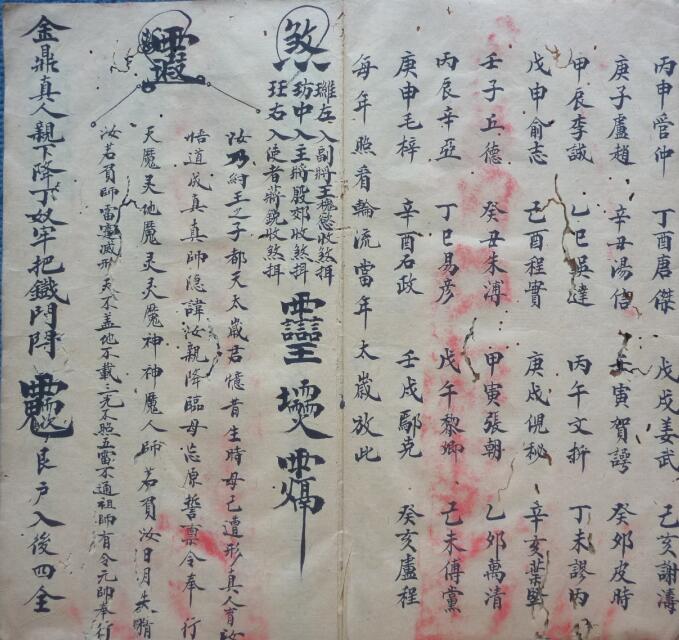 丙申管仲 丁酉唐傑 戊戌姜武 己亥謝濤
庚子盧趙 辛丑湯信 壬寅賀諤 癸卯皮時
甲辰李誠 乙巳吳達 丙午文折 丁未謬丙
戊申俞志 己酉程實 庚戌倪秘 辛亥葉堅
壬子丘德 癸丑朱溥 甲寅張朝 乙卯萬清
丙辰辛亞 丁巳易彦 戊午黎卿 己未傅黨
庚申毛梓 辛酉石政 壬戌鄢克 癸亥盧程
每年照看輪流當年太歲放此
煞
左入副將王槐愁收煞拜
中入主將殷郊收煞拜
右入使者蔣銳收煞拜
汝乃紂王之子都天太歲君憶昔生時母已遭形真人育汝
悟道成真真師隐諱汝親降臨母忘原誓禀令奉行
天魔灵地魔灵灵魔神神魔人師若負汝日月失
汝若負師雷霆滅形天不盖地不載三光不照五雷不通祖師有令元帥奉行
金鼎真人親下降丁奴牢把鐵門閉
艮户入後四全